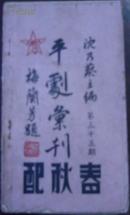 沈乃葵主編
第三十五期
平劇彙刊
梅蘭芳題
春秋配